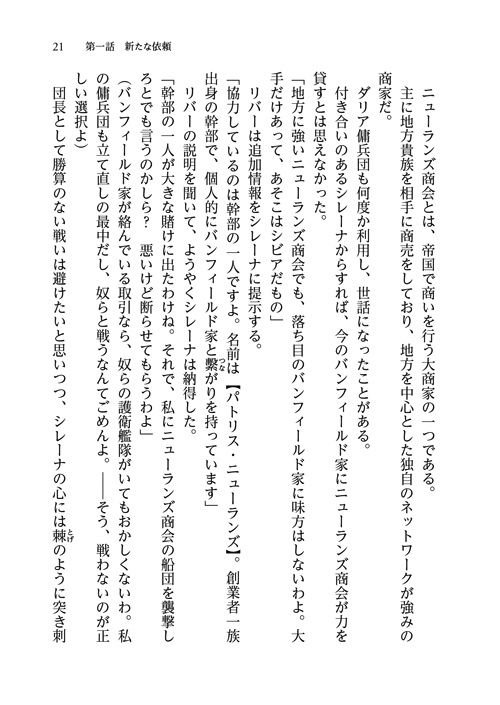 21　第一話　新たな依頼
　ニューランズ商会とは、帝国で商いを行う大商家の一つである。
　主に地方貴族を相手に商売をしており、地方を中心とした独自のネットワークが強みの
商家だ。
　ダリア傭兵団も何度か利用し、世話になったことがある。
　付き合いのあるシレーナからすれば、今のバンフィールド家にニューランズ商会が力を
貸すとは思えなかった。
「地方に強いニューランズ商会でも、落ち目のバンフィールド家に味方はしないわよ。大
手だけあって、あそこはシビアだもの」
　リバーは追加情報をシレーナに提示する。
「協力しているのは幹部の一人ですよ。名前は【パトリス・ニューランズ】。創業者一族
出身の幹部で、個人的にバンフィールド家と繋がりを持っています」
つな
　リバーの説明を聞いて、ようやくシレーナは納得した。
「幹部の一人が大きな賭けに出たわけね。それで、私にニューランズ商会の船団を襲撃し
ろとでも言うのかしら？　悪いけど断らせてもらうわよ」
（バンフィールド家が絡んでいる取引なら、奴らの護衛艦隊がいてもおかしくないわ。私
の傭兵団も立て直しの最中だし、奴らと戦うなんてごめんよ。――そう、戦わないのが正
しい選択よ）
　団長として勝算のない戦いは避けたいと思いつつ、シレーナの心には棘のように突き刺
とげ